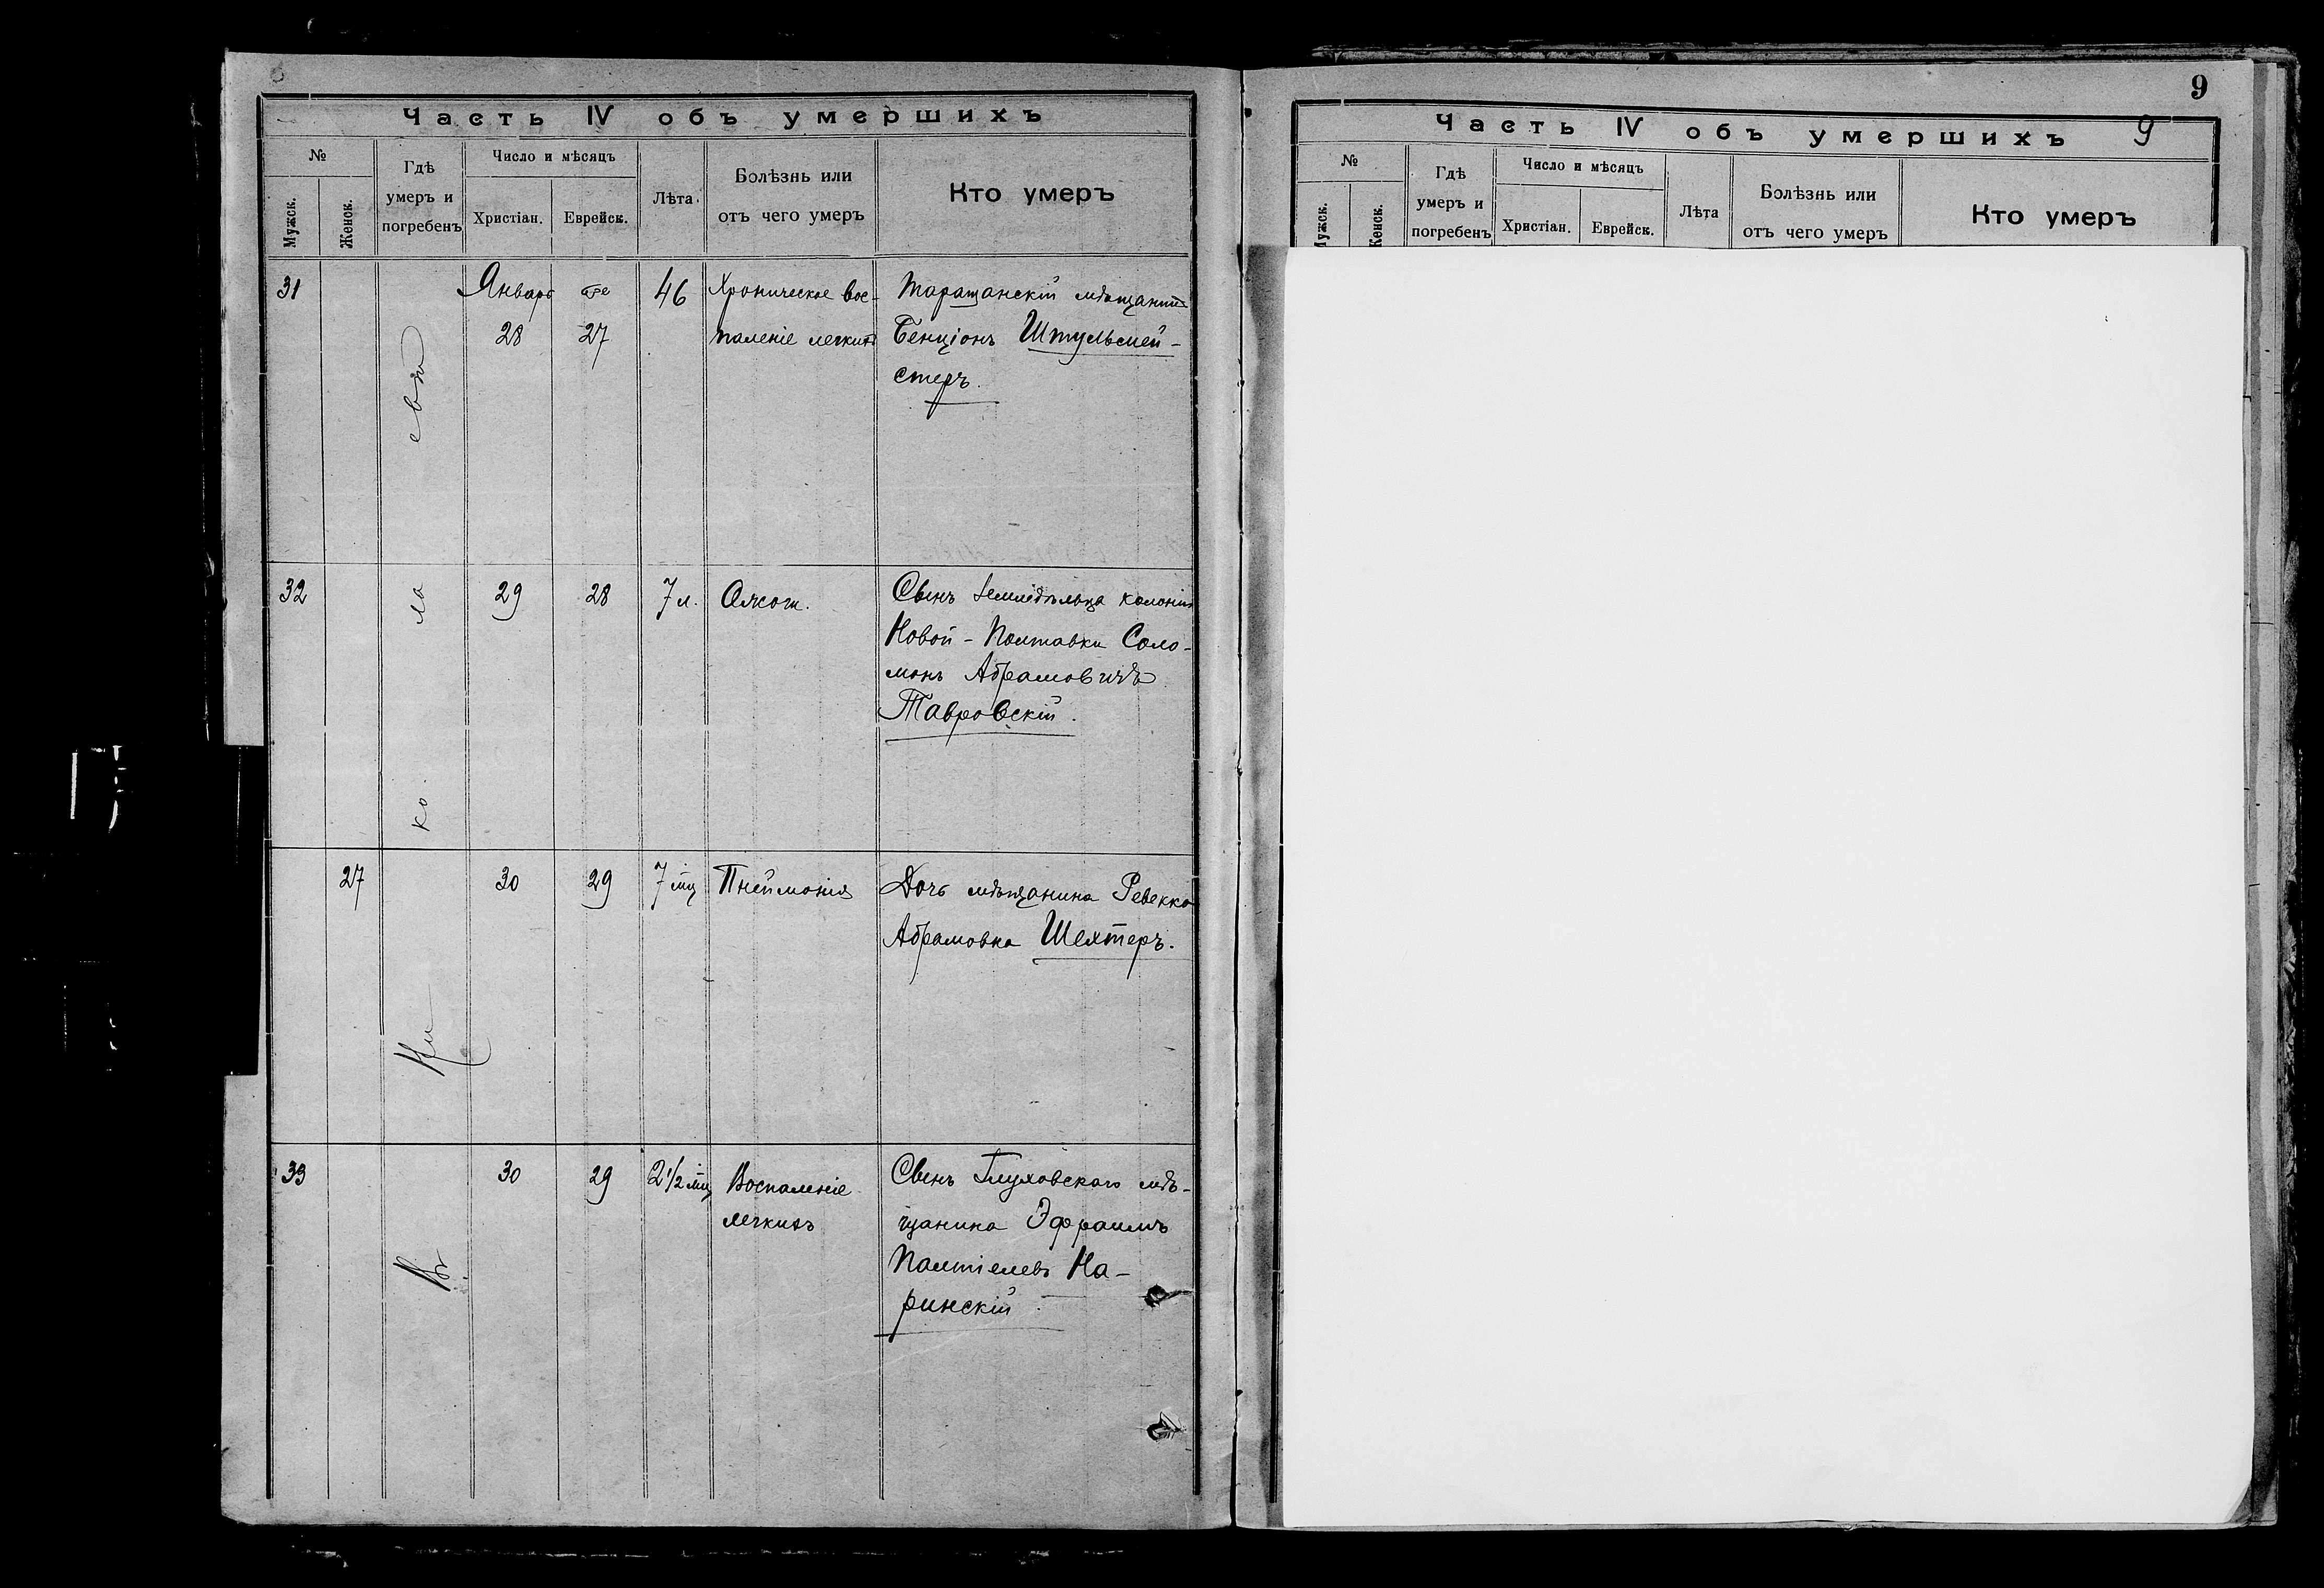 Часть IV объ умершихъ
№
Мужск.
Женск.
Гдѣ
умеръ и
погребенъ
Число и мѣсяцъ
Христіан.
Еврейск.
Лѣта
Болѣзнь или
отъ чего умеръ
Кто умеръ
31
Январь
28
27
46
Хроническое вос-
паленіе легкихъ
Таращанскій мѣщанинъ
Бенціонъ Штульмей-
стеръ.
32
29
28
7 л.
Ожог.
Сынъ земледѣльца колоніи
Новой-Полтавки Соло-
монъ Абрамовичъ
Тавровскій.
27
30
29
7 мц
Пнеймонія
Дочь мѣщанина Ревекка
Абрамовна Шехтеръ.
33
30
29
2 1/2 мц
Воспаленіе
легкихъ
Сынъ Глуховскаго мѣ-
щанина Эфраимъ
Палтіелевъ На-
ринскій.
Въ Нико.лаевѣ
9
Часть IV объ умершихъ 9
№
Мужск.
Женск.
Гдѣ
умеръ и
погребенъ
Число и мѣсяцъ
Христіан.
Еврейск.
Лѣта
Болѣзнь или
отъ чего умеръ
Кто умеръ